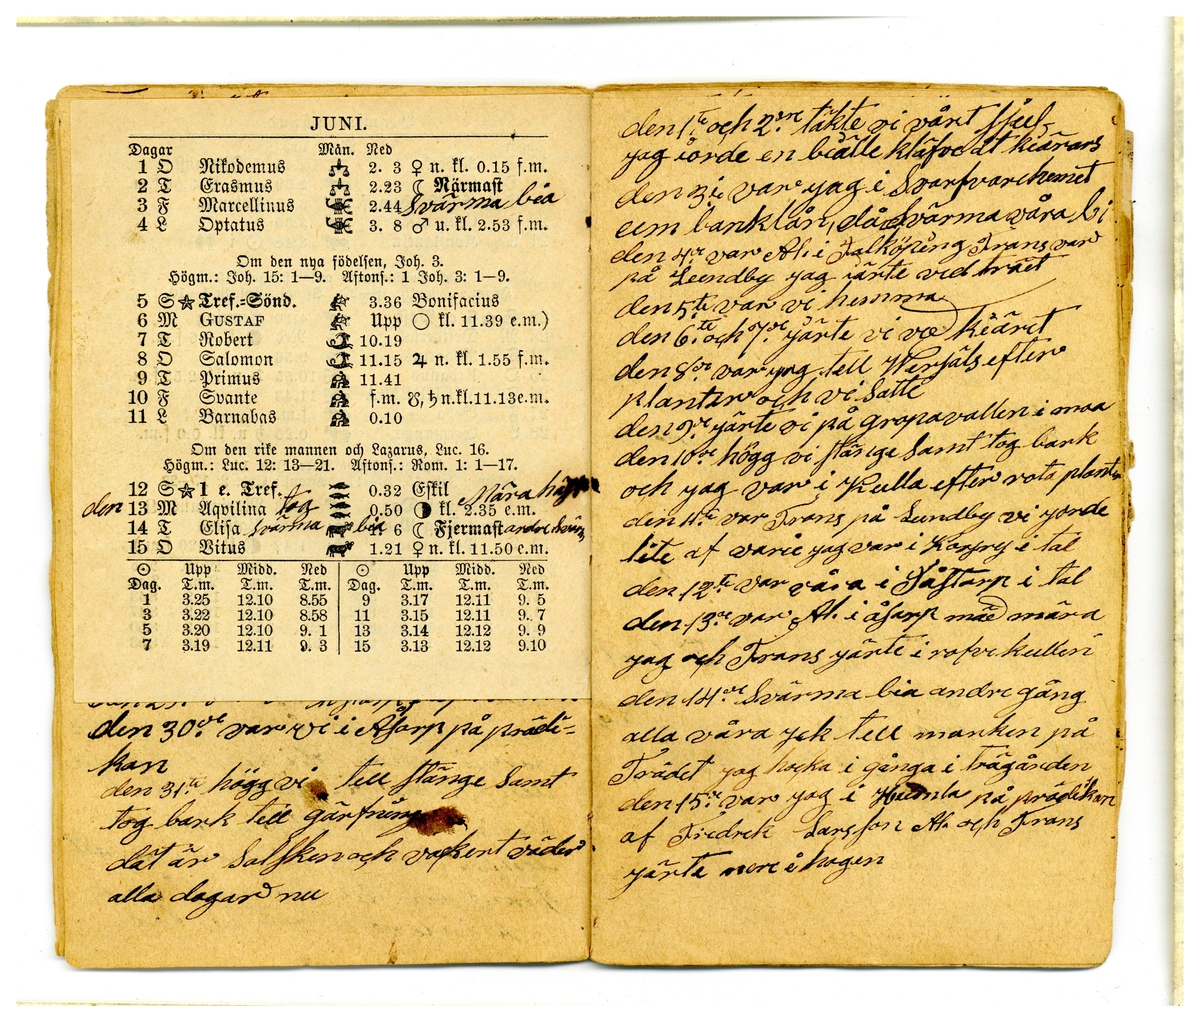 JUNI.
Dagar Mån. Ned
1 O Nikodemus 2. 3 ♀ n. kl. 0.15 f.m.
2 T Erasmus 2.23 ☾ Närmast
3 F Marcellinus 2.44 Svärma bia
4 L Optatus 3. 8 ♂ u. kl. 2.53 f.m.
Om den nya födelsen, Joh. 3.
Högm.: Joh. 15: 1—9. Aftonf.: 1 Joh. 3: 1—9.
5 S Tref.=Sönd. 3.36 Bonifacius
6 M GUSTAF Upp ○ kl. 11.39 e.m.)
7 T Robert 10.19
8 O Salomon 11.15 ♃ n. kl. 1.55 f.m.
9 T Primus 11.41
10 F Svante f.m. ☋, ♄ n.kl.11.13e.m.
11 L Barnabas 0.10
Om den rike mannen och Lazarus, Luc. 16.
Högm.: Luc. 12: 13—21. Aftonf.: Rom. 1: 1—17.
12 S 1 e. Tref. 0.32 Eskil Mära
den 13 M Aqvilina tog 0.50 kl. 2.35 e.m.
14 T Elisa Svärma bia 1. 6 ☾ Fjermast andre
15 O Vitus 1.21 ♀ n. kl. 11.50 e.m.
☉ Upp Midd. Ned ☉ Upp Midd. Ned
Dag. T.m. T.m. T.m. Dag. T.m. T.m. T.m.
1 3.25 12.10 8.55 9 3.17 12.11 9. 5
3 3.22 12.10 8.58 11 3.15 12.11 9. 7
5 3.20 12.10 9. 1 13 3.14 12.12 9. 9
7 3.19 12.11 9. 3 15 3.13 12.12 9.10
den 30de var vi i Åsarp på prädi-
kan
den 31te högg vi till stänge samt
tog bark till gärfning
dät är Solsken och vackert väder
alla dagar nu
den 1te och 2dre täkte vi vårt
yag iorde en klåfve at kiärars
den 3i var yag i Svarfvarehemet
em banklån, då Svärma våra bi
den 4de var Al. i Falköping Frans var
på Lundby yag iärte ved träet
den 5te var vi hemma
den 6te och 7de yärte vi ve kiäret
den 8de var yag till efter
plantor och vi Satte
den 9de yärte vi på gropavallen i maa
den 10de högg vi stänge Samt tog bark
och yag var i Kulla efter rota plantor
den 11te var Frans på Lundby vi yorde
lite af varie yag var i i tal
den 12te var våra i i tal
den 13de var Al. i Åsarp mäd mära
yag och Frans yärte i rofvekullen
den 14de Svärma bia andre gång
alla våra yck till manken på
Trädet yag hacka i gånga i trägården
den 15de var yag i på prädikan
af Fredrek Larsson Al. och Frans
yärte nere i hagen